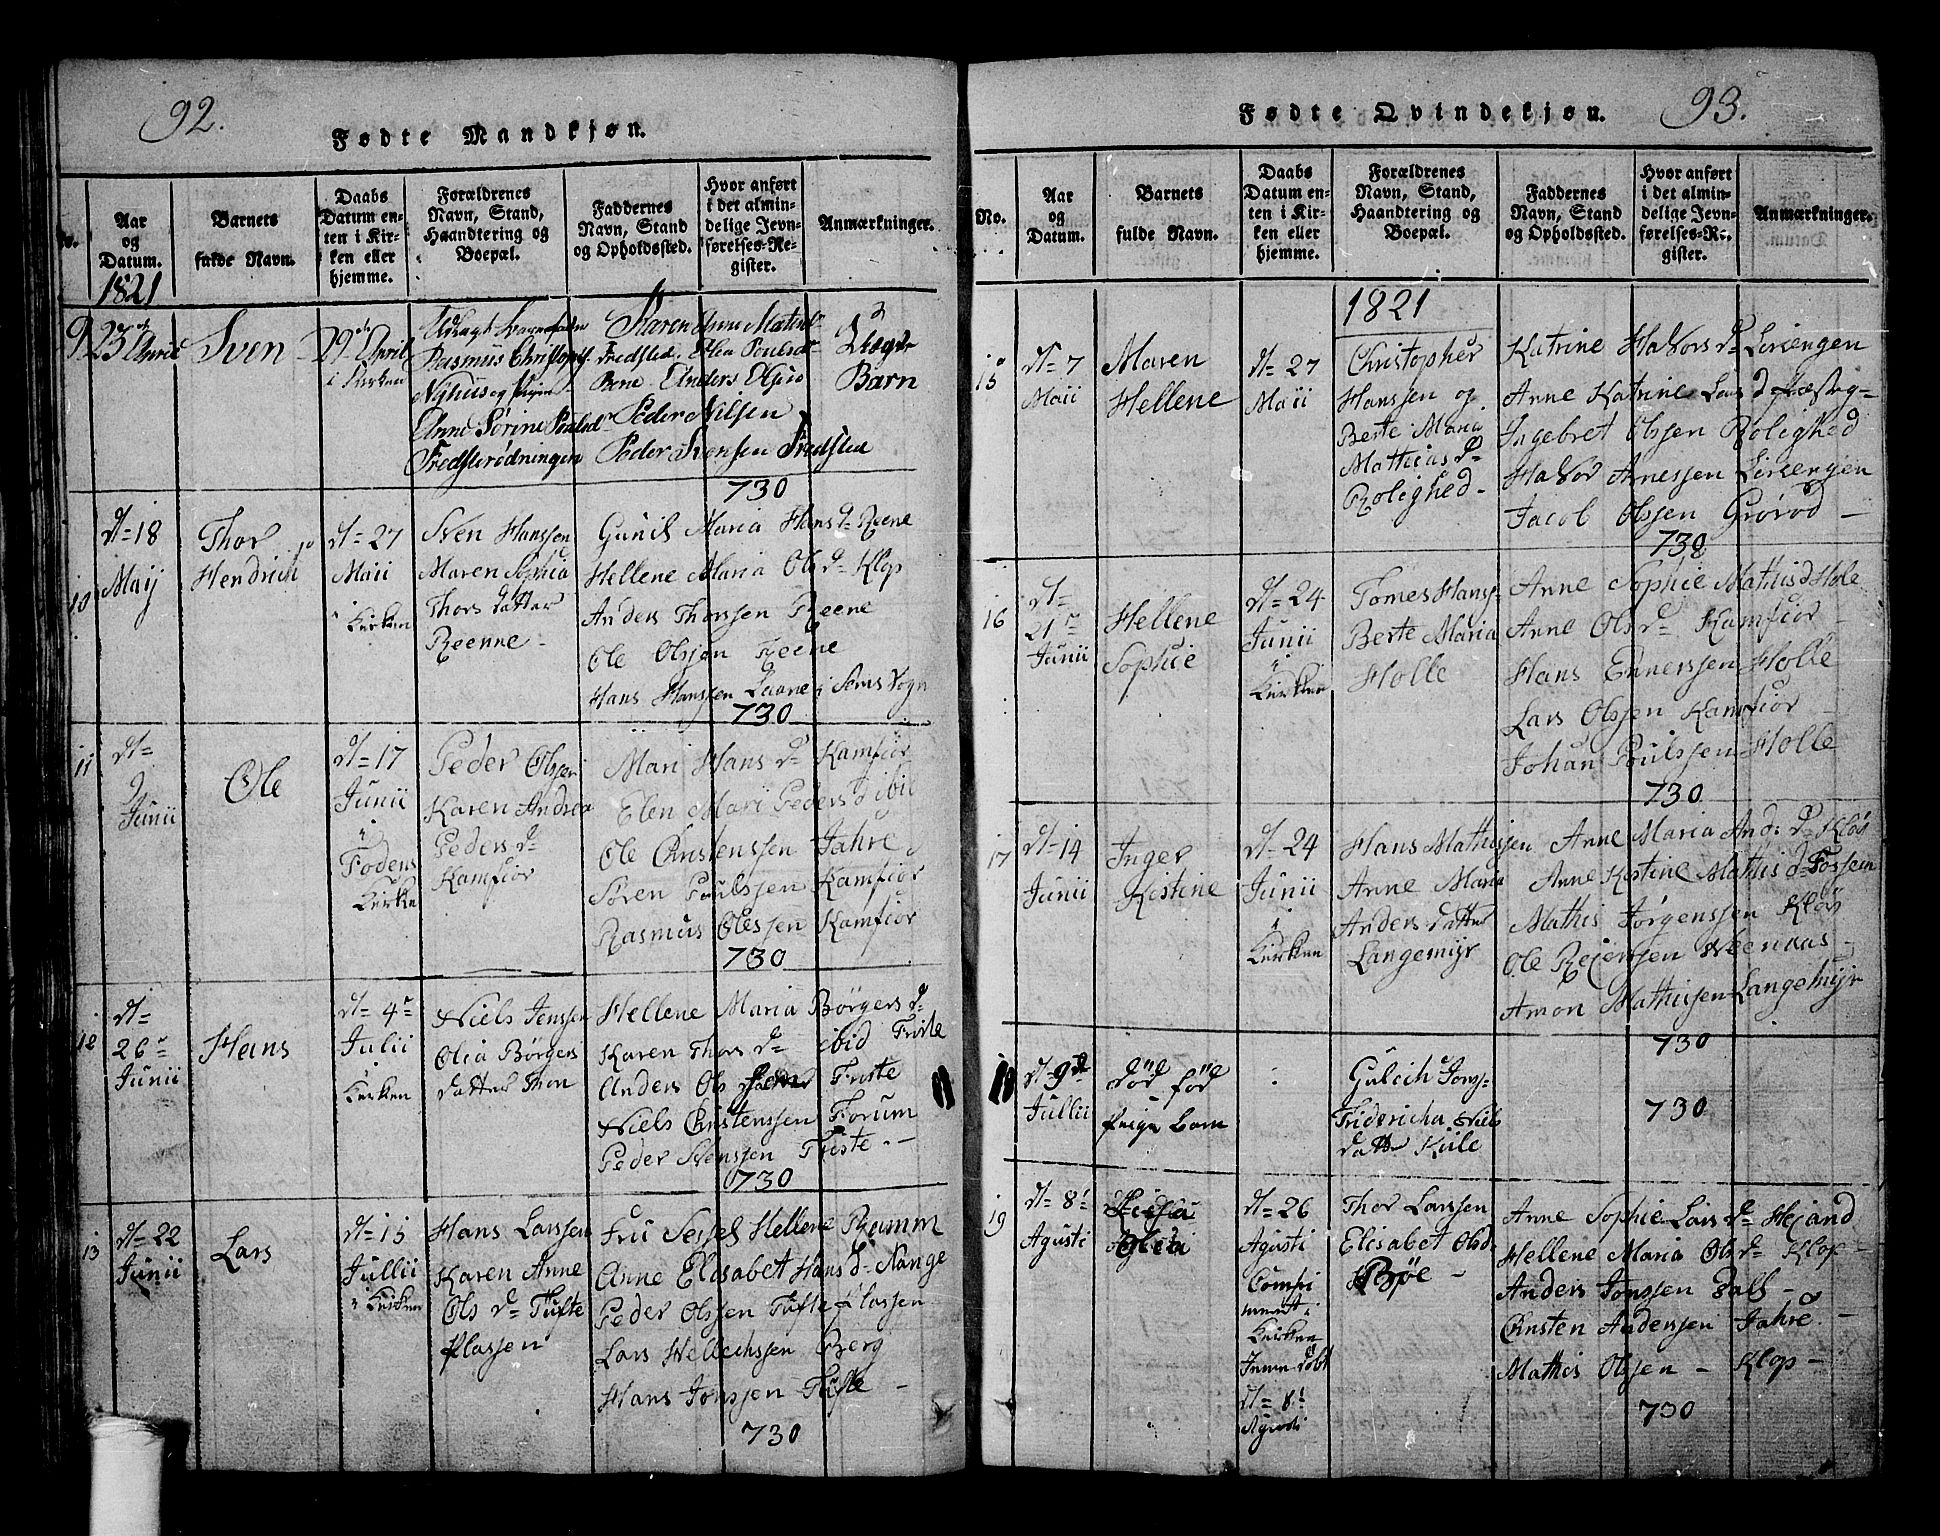 92.
Fødte Mandkjøn.
No.
Aar
og
Datum.
Barnets
fulde Navn.
Daabs
Datum en-
ten i Kir-
ken eller
hjemme.
Forældrenes
Navn, Stand,
Haandtering og
Boepæl.
Faddernes
Navn, Stand
og Opholdssted.
Hvor anført
i det almin-
delige Jevn-
førelses-Re-
gister.
Anmærkninger.
1821
9
23de April
Sven
29de April
i Kirken
Udlagt Barnefader
Rasmus Christophs.
Nyhus og Pigen
Anne Sørine Poulsd
Fredsterødningen
Karen Anne
Fredsted. Elen Poulsd
Anders
Peder Nilsen
Peder Svensen Fredsted
Uægte
Barn
730
10
d-18
Maij
Thor
Hendrich
d-27
Maii
i
Kirken
Sven Hanssen
Maren Sophia
Thors datter
Reenne -
Gunil Maria Hans d- Reene
Hellene Maria Ols d- Klop
Anders Thorssen Reene
Ole Olssen Reene
Hans Hanssen Laane i Sems Sogn
730
11
d-
9
Junii
Ole
d-17
Junii
i
Fodens
Kirke
Peder Olssen
Karen Andrea
Peders d-
Kamfior
Mari Hans d- Kamfior
Elen Mari Peders d ibid
Ole Christenssen Jahre
Søren Poulssen Kamfior
Rasmus Olessen Kamfior
730
12
d-
26-
Junii
Hans
d- 4-
Julii
i
Kirken
Niels Jenssen
Olia Børgers
datter Thon
Hellene Maria Børgers d-
Karen Thors d- ibid Friste
Anders Ols Friste
Niels Christenssen Forum
Peder Svenssen Friste -
730
13
d-22
Junii
Lars
d-15
Jullii
i Kirken
Hans Larssen
Karen Anne
Ols d- Tufte
plassen
Fru Sessel Hellene Ramm
Anne Elisabet Hans d- Nange
Peder Olssen Tufte plassen
Lars Hellechssen Berg
Hans Jonssen Tufte -
730
93.
Fødte Qvindekjøn.
No.
Aar
og
Datum.
Barnets
fulde Navn.
Daabs
Datum en-
ten i Kir-
ken eller
hjemme.
Forældrenes
Navn, Stand,
Haandtering og
Boepæl.
Faddernes
Navn, Stand
og Opholdssted.
Hvor anført
i det almin-
delige Jevn-
førelses-Re-
gister.
Anmærkninger.
1821
15
d-7
Maii
Maren
Hellene
d-27
Maii
Christopher
Hanssen og
Berte Maria
Mathias d-
Rolighed -
Katrine Halvors d- Lersengen
Anne Katrine Lars d
Ingebret Olssen Rolighed
Halvor Arnessen Lersengen
Jacob Olssen Grørød -
730
16
d-
21-
Junii
Hellene
Sophie
d-24
Junii
i
Kirken
Tomes Hanss-
Berte Maria
Holle
Anne Sophie Mathis d Hole
Anne Ols d- Kamfior -
Hans Ennerssen Holle
Lars Olssen Kamfior -
Johan Poulssen Holle
730
17
d-14
Junii
Inger
Kistine
d-24
Junii
i
Kirken
Hans Mathissen
Anne Maria
Anders datter
Langemyr
Anne Maria And: d- Kløs
Anne Kistine Mathis d- Fossem
Mathis Jørgenssen Kløs
Ole Reierssen
Amon Mathissen Langemyr
730
18
d-9de
Jullii
død fød
Pige barn
Gulech Jons-
Fridericha Niels
datt Kiile
730
19
d- 8-
Agusti
Olea
d-26
Agusti
Comfri
ment i
Kirken
hjemme døbt
d- 8-
Agusti
Thor Larssen
Elisabet Olsd.
Bøe -
Anne Sophie Lars d- Hejand
Hellene Maria Ols d- Klop -
Anders Jonssen Ball -
Christen Anderssen Jahre -
Mathis Olssen - Klop -
730